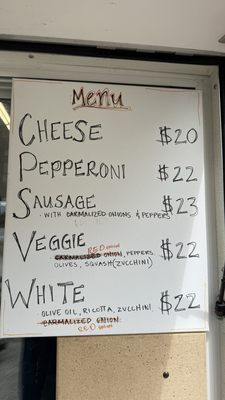 Menu
CHEESE $20
PEPPERONI $22
SAUSAGE $23
- WITH CARMALIZED ONIONS & PEPPERS
VEGGIE $22
RED ONION
CARMALIZED ONION, PEPPERS
OLIVES, SQUASH (ZUCCHINI)
WHITE $22
OLIVE OIL, RICOTTA, ZUCCHINI
CARMALIZED ONION
RED ONION